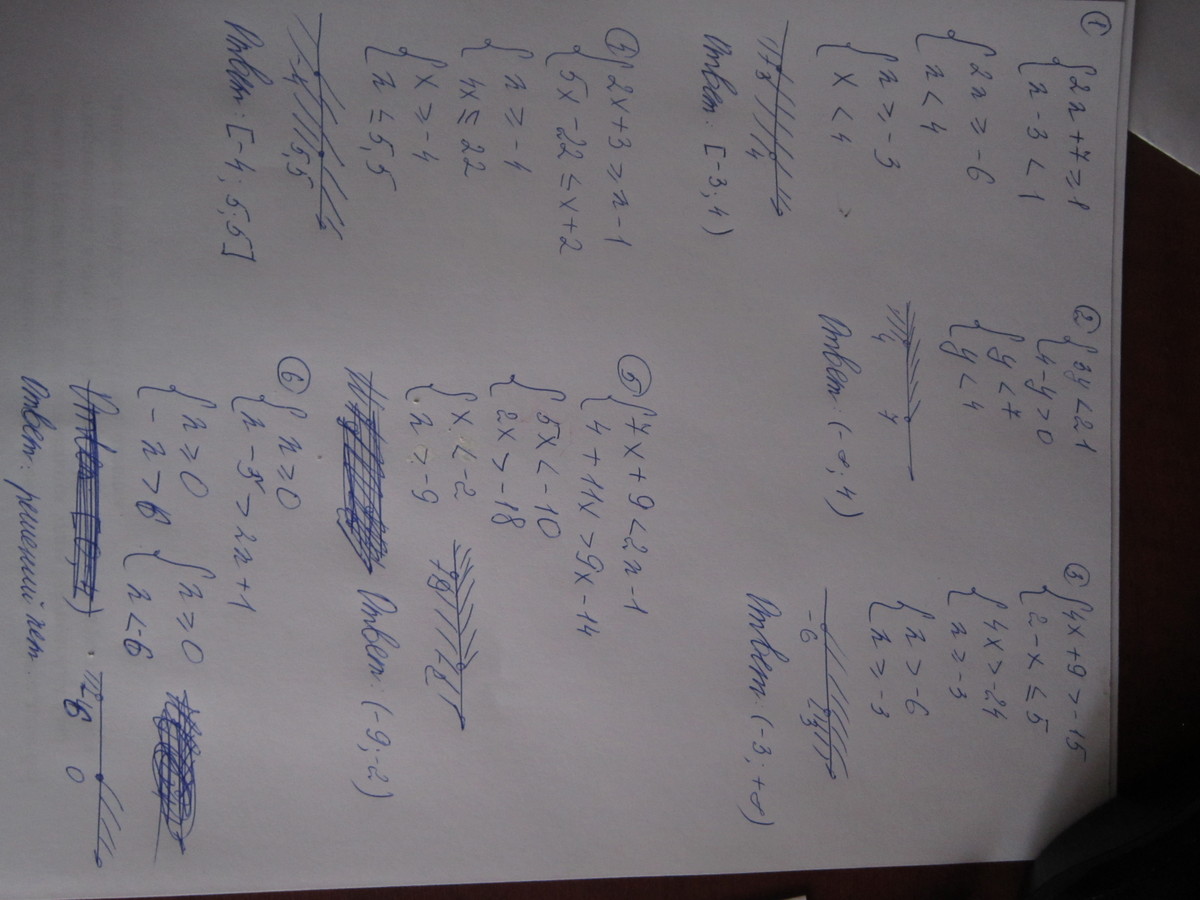 ① { 2x + 7 ≥ 1
{ x - 3 < 1
{ 2x ≥ -6
{ x < 4
{ x ≥ -3
{ x < 4
-3 4
Ответ: [-3; 4)
② { 3y < 21
{ 4 - y > 0
{ y < 7
{ y < 4
4 7
Ответ: (-∞; 4)
③ { 4x + 9 > -15
{ 2 - x ≤ 5
{ 4x > -24
{ x ≥ -3
{ x > -6
{ x ≥ -3
-6 -3
Ответ: (-3; +∞)
④ { 2x + 3 ≥ x - 1
{ 5x - 22 ≤ x + 2
{ x ≥ -4
{ 4x ≤ 22
{ x ≥ -4
{ x ≤ 5,5
-4 5,5
Ответ: [-4; 5,5]
⑤ { 7x + 9 < 2x - 1
{ 4 + 11x > 9x - 14
{ 5x < -10
{ 2x > -18
{ x < -2
{ x > -9
-9 -2
Ответ: (-9; -2)
⑥ { x ≥ 0
{ x - 5 > 2x + 1
{ x ≥ 0
{ -x > 6
{ x ≥ 0
{ x < -6
-6 0
Ответ: решений нет.